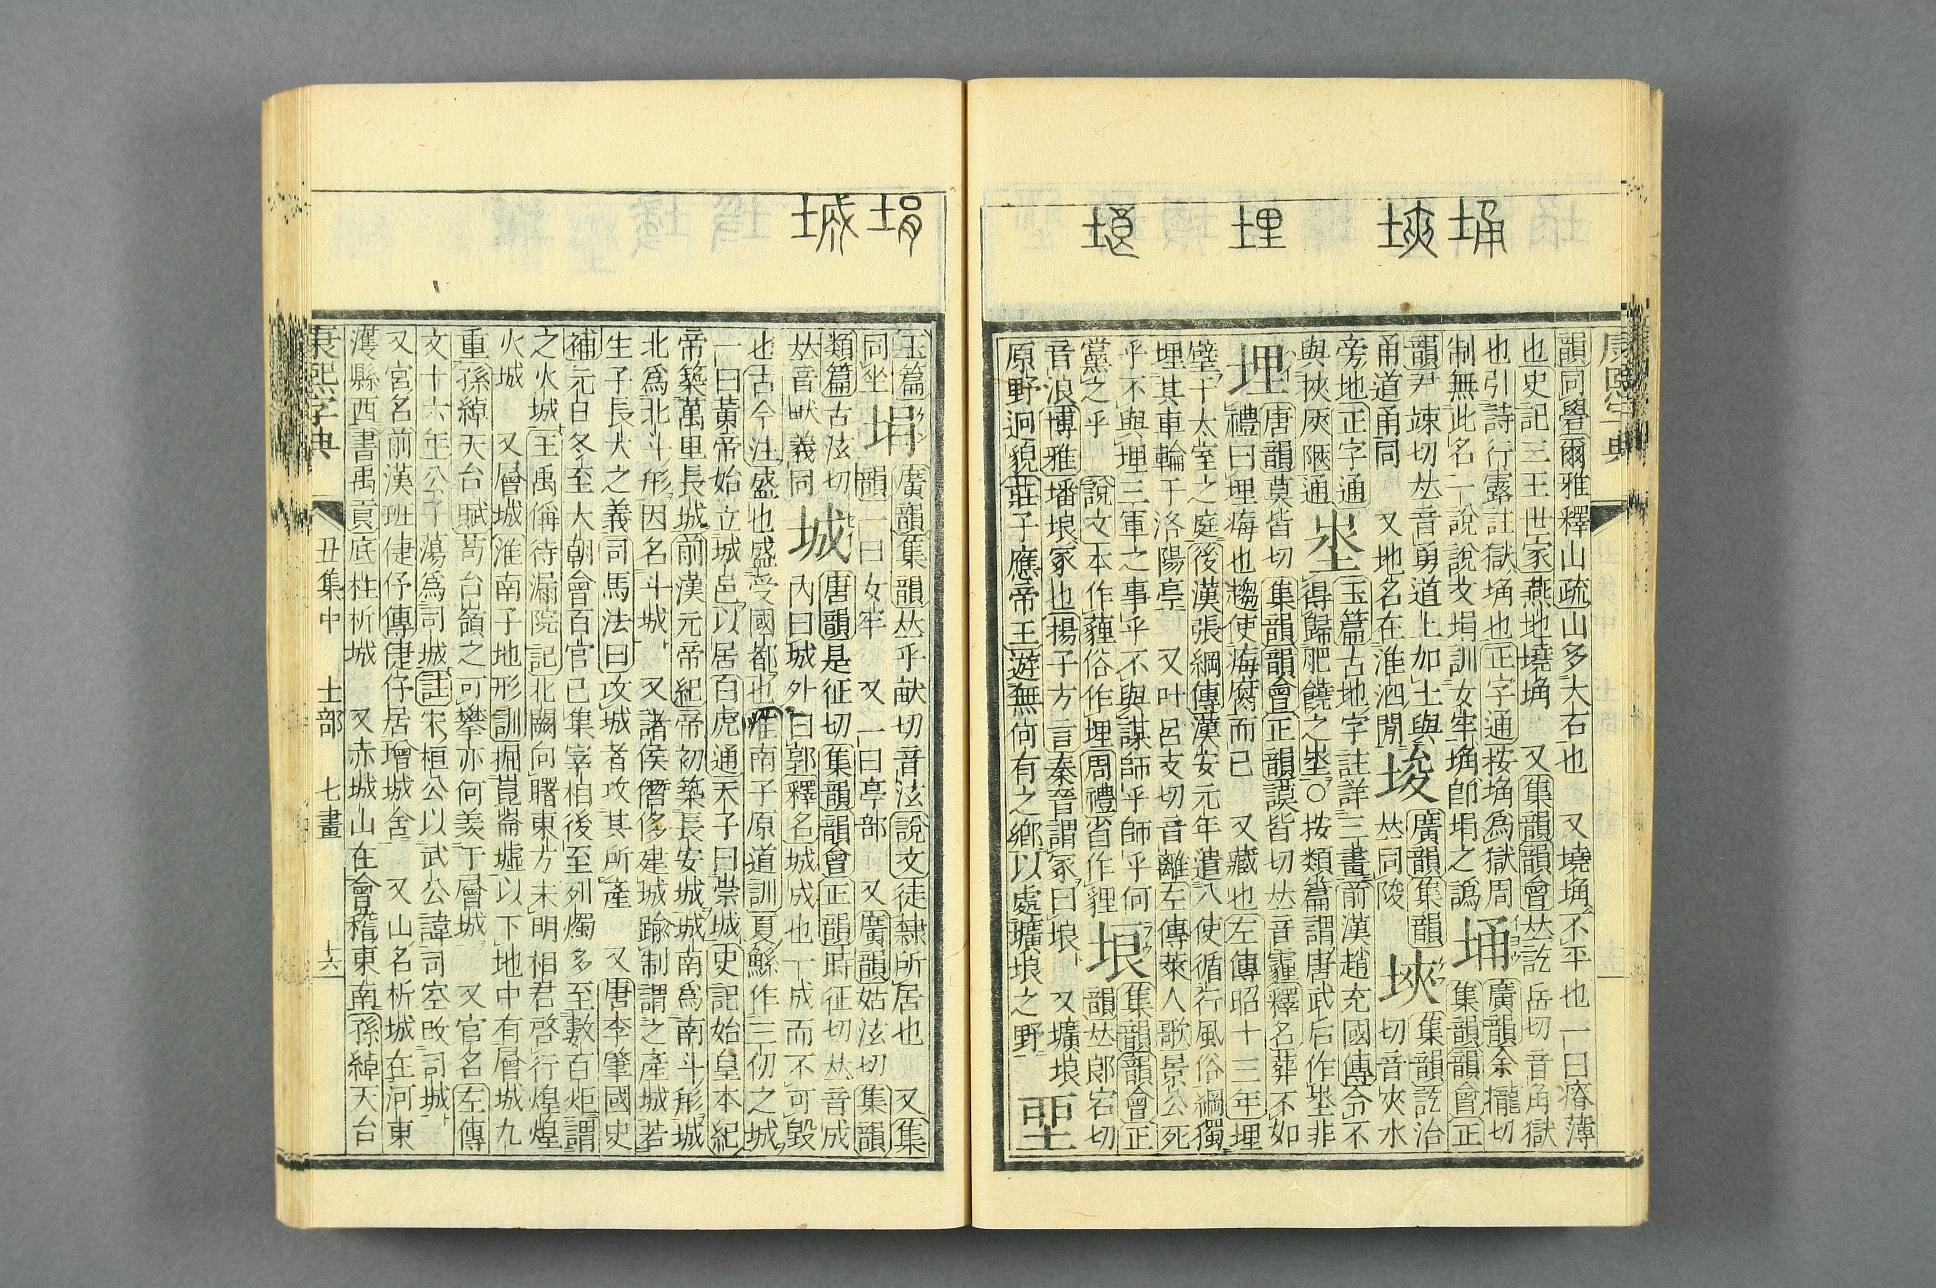 埇 埉 埋 埌
韻同礐爾雅釋山疏山多大石也 又墝埆不平也一曰瘠薄
也史記三王世家燕地墝埆 又集韻韻會𠀤訖岳切音角獄
也引詩行露註獄埆也正字通按埆爲獄周 埇 廣韻余攏切
制無此名一說說文埍訓女牢埆卽埍之譌 集韻韻會正
韻尹竦切𠀤音勇道上加土與 埈 廣韻集韻 埉 集韻訖洽
甬道甬同 又地名在淮泗閒 𠀤同陖 切音夾水
旁地正字通 坔 玉篇古地字註詳三畫前漢趙充國傳令不
與挾陿通 得歸肥饒之坔○按類篇謂唐武后作坔非
埋 唐韻莫皆切集韻韻會正韻謨皆切𠀤音霾釋名葬不如
禮曰埋埋痗也趨使痗腐而已 又藏也左傳昭十三年埋
璧于太室之庭後漢張綱傳漢安元年遣八使循行風俗綱獨
埋其車輪于洛陽亭 又叶呂支切音離左傳萊人歌景公死
乎不與埋三軍之事乎不與謀師乎師乎何
黨之乎 說文本作薶俗作埋周禮省作貍 埌 集韻韻會正
音浪博雅墦埌冢也揚子方言秦晉謂冢曰埌 又壙埌 韻𠀤郞宕切
原野迥貌莊子應帝王遊無何有之鄕以處壙埌之野 垔
埍 城
玉篇 埍 廣韻集韻𠀤乎畎切音泫說文徒隸所居也 又集
同坐 韻一曰女牢 又一曰亭部 又廣韻姑泫切集韻
類篇古泫切 城 唐韻是征切集韻韻會正韻時征切𠀤音成
𠀤音畎義同 內曰城外曰郭釋名城成也一成而不可毀
也古今注盛也盛受國都也 淮南子原道訓夏鯀作三仞之城
一曰黃帝始立城邑以居白虎通天子曰崇城史記始皇本紀
帝築萬里長城前漢元帝紀帝初築長安城城南爲南斗形城
北爲北斗形因名斗城 又諸侯僭侈建城踰制謂之產城若
生子長大之義司馬法曰攻城者攻其所產 又唐李肇國史
補元日冬至大朝會百官已集宰相後至列燭多至數百炬謂
之火城王禹偁待漏院記北闕向曙東方未明相君啓行煌煌
火城 又層城淮南子地形訓掘崑崙墟以下地中有層城九
重孫綽天台賦苟台嶺之可攀亦何羨于層城 又官名左傳
文十六年公子蕩爲司城註宋桓公以武公諱司空改司城
又宮名前漢班倢伃傳倢伃居增城舍 又山名析城在河東
濩縣西書禹貢底柱析城 又赤城山在會稽東南孫綽天台
康熙字典 丑集中 土部 七畫 十六